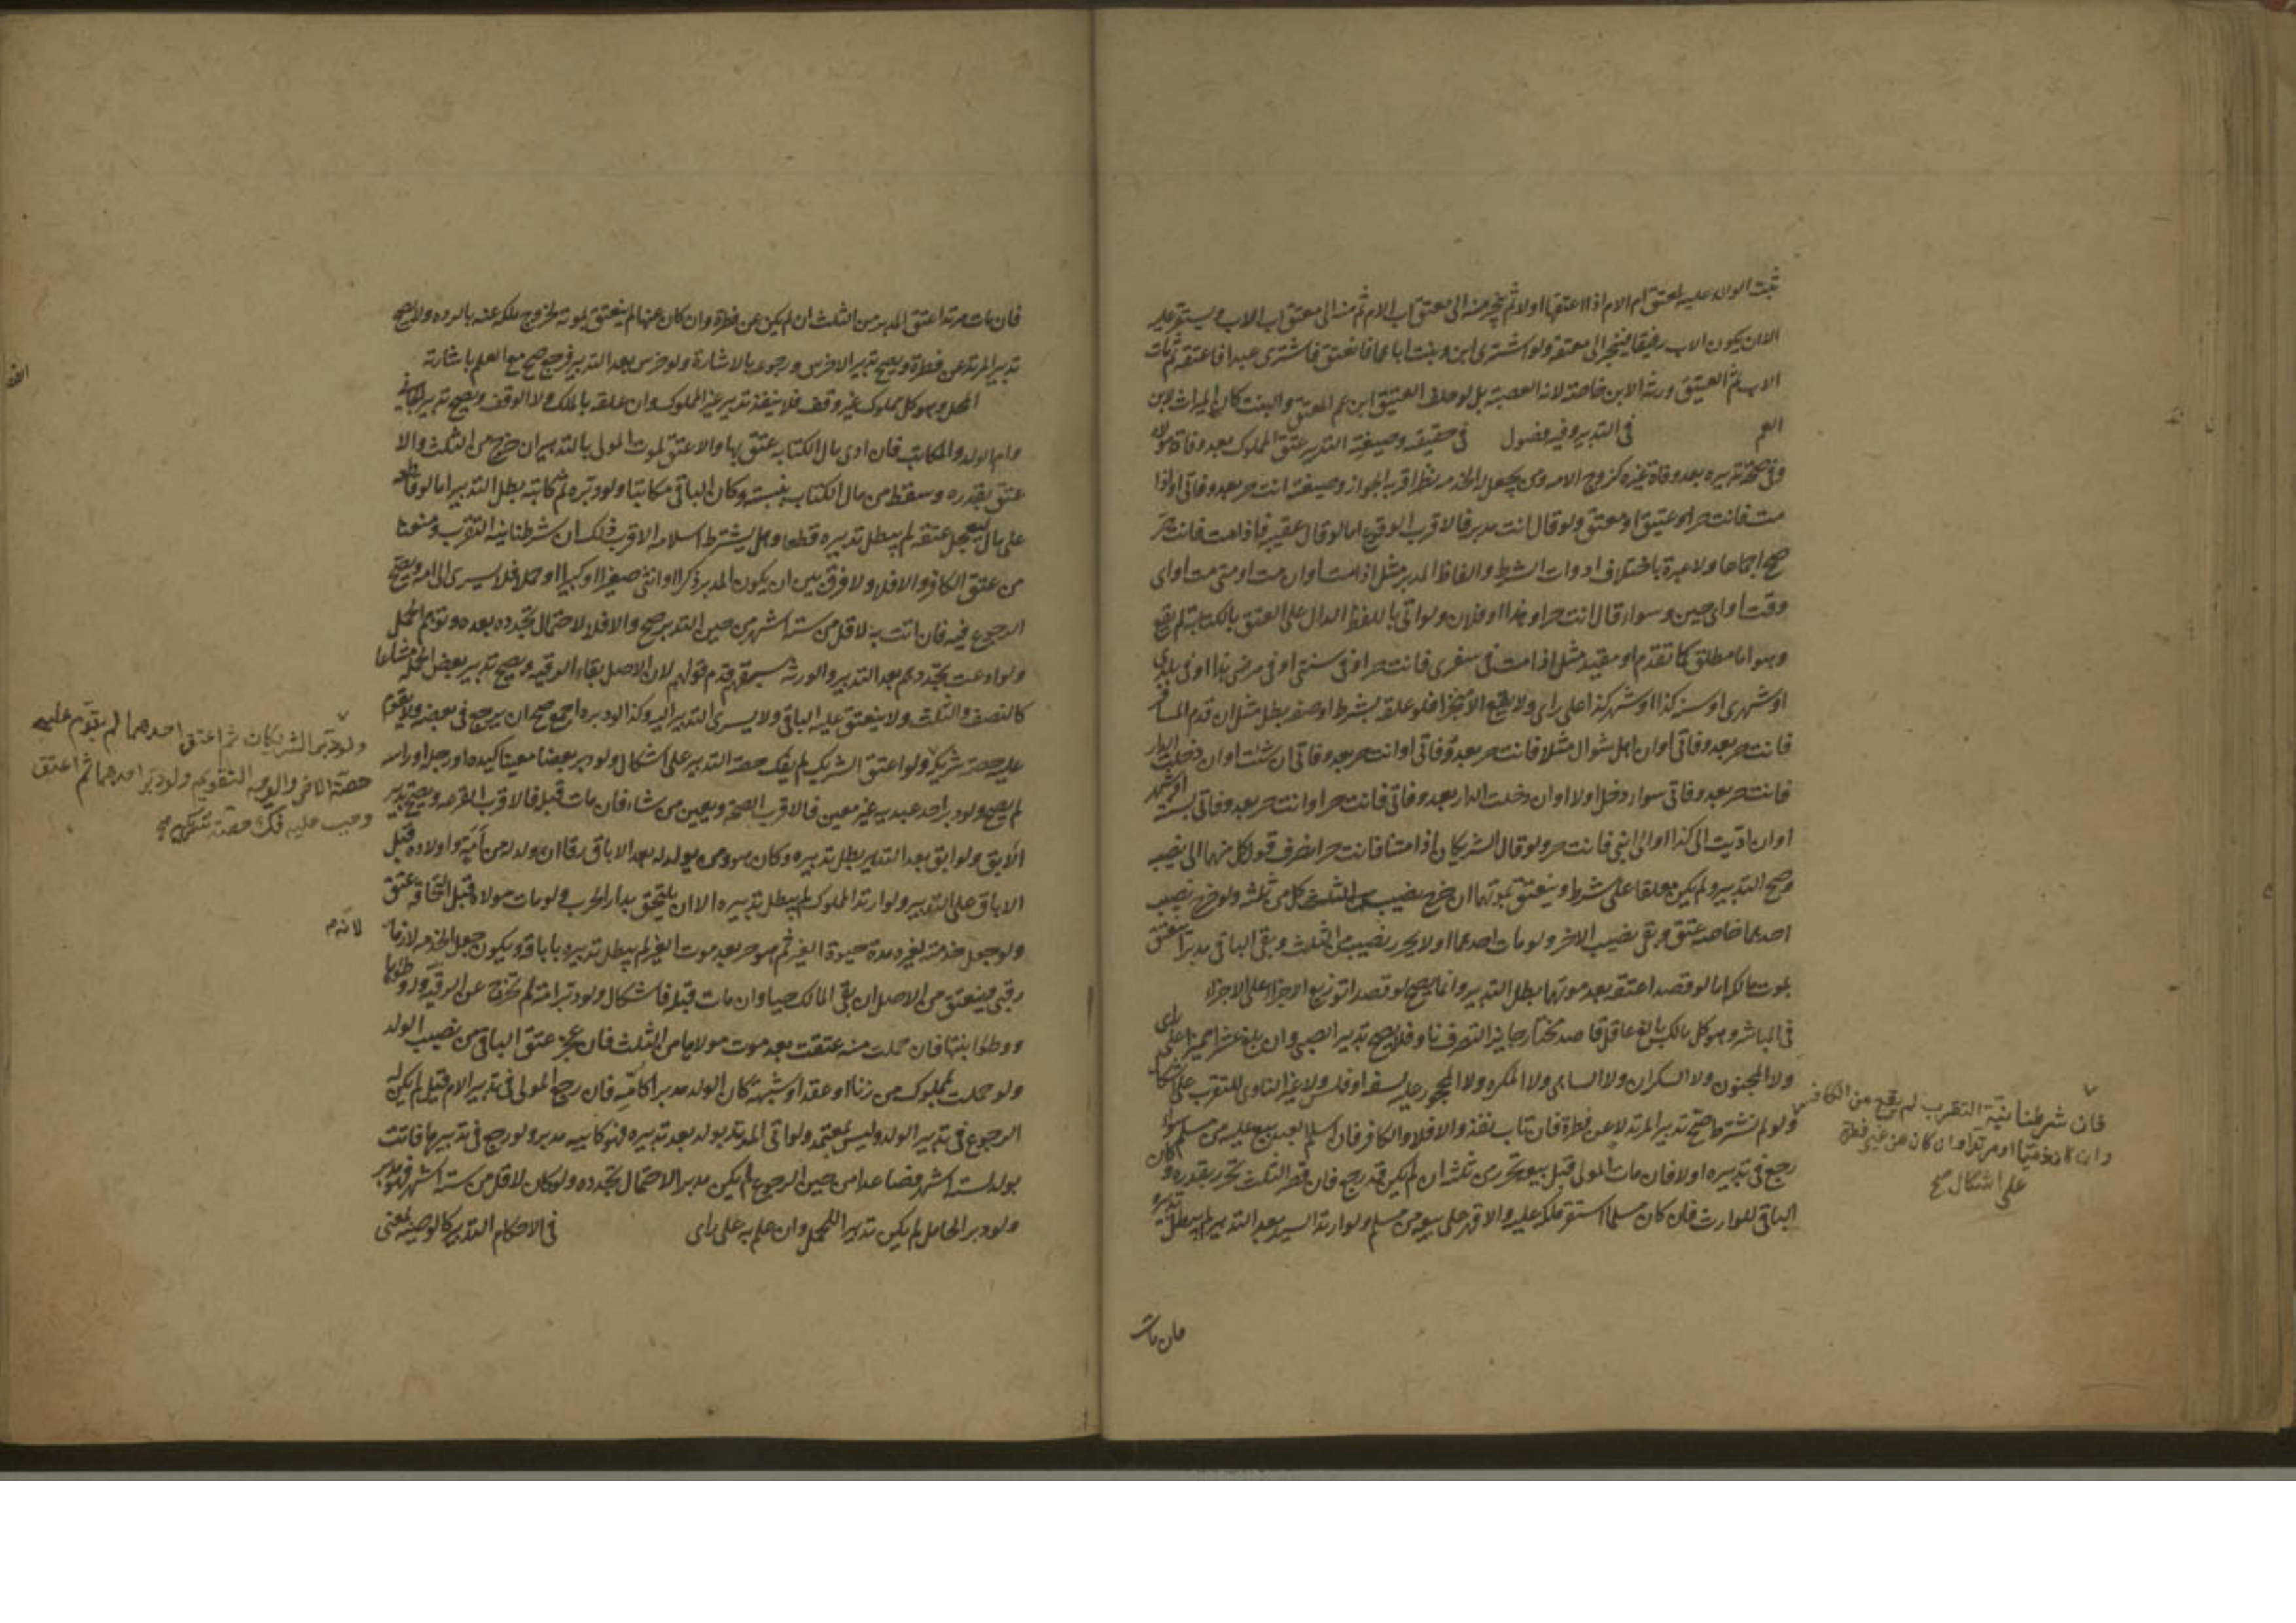 ثبت الولاء عليه لمعتق ام الام اذا اعتقها اولا ثم ينجر منه الى معتق اب الام ثم منه الى معتق اب الاب ويستقر عليه
الا ان يكون الاب رقيقا فينجر الى معتقه ولو اشترى ابن وبنت اباهما فانعتق فاشترى عبدا فاعتقه ثم مات
الاب ثم العتيق ورثه الابن خاصة لانه العصبة بل لو خلف العتيق ابن عم المعتق والبنت كان الميراث لابن
العم في التدبير وفيه فصول في حقيقته وصيغته التدبير عتق المملوك بعد وفاة مولاه
وفي صحة تدبيره بعد وفاة غيره كزوج الامة ومن يجعل له الخدمة نظر اقربه الجواز وصيغته انت حر بعد وفاتي او اذا
مت فانت حر او عتيق او معتق ولو قال انت مدبر فالاقرب الوقوع اما لو قال عقيبه فاذا مت فانت حر
صح اجماعا ولا عبرة باختلاف ادوات الشرط والفاظ المدبر مثل اذا مت او ان مت او متى مت او اي
وقت او اي حين وسواء قال انت حر او هذا او فلان ولو اتى باللفظ الدال على العتق بالكتابة لم يقع
وهو اما مطلق كما تقدم او مقيد مثل اذا مت في سفري فانت حر او في سنتي او في مرضي هذا او في بلدي
او شهري او سنة كذا او شهر كذا على راي ولا يقع الا منجزا فلو علقه بشرط او صفة بطل مثل ان قدم المسافر
فانت حر بعد وفاتي او ان اهل شوال مثلا فانت حر بعد وفاتي او انت حر بعد وفاتي ان شئت او ان دخلت الدار
فانت حر بعد وفاتي سواء دخل اولا او ان دخلت الدار بعد وفاتي فانت حر او انت حر بعد وفاتي بسنة او شهر
او ان اديت الي كذا او الى ابني فانت حر ولو قال الشريكان اذا متنا فانت حر انصرف قول كل منهما الى نصيبه
وصح التدبير ولم يكن معلقا على شرط وينعتق بموتهما ان خرج نصيب كل من ثلثه ولو خرج نصيب
احدهما خاصة عتق وبقي نصيب الاخر ولو مات احدهما اولا تحرر نصيبه من الثلث وبقي الباقي مدبرا ينعتق
بموت مالكه اما لو قصدا عتقه بعد موتهما بطل التدبير وانما يصح لو قصدا توزيع الاجزاء على الاجزاء
في المباشر وهو كل مالك بالغ عاقل قاصد مختار جايز التصرف ناو فلا يصح تدبير الصبي وان بلغ عشرا مميزا على راي
ولا المجنون ولا السكران ولا الساهي ولا المكره ولا المحجور عليه لسفه او فلس ولا غير الناوي للتقرب على اشكال
ولو لم نشترط صح تدبير المرتد لا عن فطرة فان تاب نفذ والا فلا والكافر فان اسلم العبد بيع عليه من مسلم سواء
رجع في تدبيره او لا فان مات المولى قبل بيعه تحرر من ثلثه ان لم يكن قد رجع فان قصر الثلث تحرر بقدره وكان
الباقي للوارث فان كان مسلما استقر ملكه عليه والا قهر على بيعه من مسلم ولو ارتد السيد بعد التدبير لم يبطل تدبيره
فان مات
فان شرطنا نية التقرب لم يقع من الكافر
وان كان ذميا او مرتدا وان كان عن غير فطرة
على اشكال صح
فان مات مرتدا عتق المدبر من الثلث ان لم يكن عن فطرة وان كان عنها لم ينعتق بموته لخروج ملكه عنه بالردة ولا يصح
تدبير المرتد عن فطرة ويصح تدبير الاخرس ورجوعه بالاشارة ولو خرس بعد التدبير فرجع صح مع العلم باشارته
المحل وهو كل مملوك غير وقف فلا ينفذ تدبير غير المملوك وان علقه بالملك ولا الوقف ويصح تدبير الجاني
وام الولد والمكاتب فان ادى مال الكتابة عتق بها والا عتق بموت المولى بالتدبير ان خرج من الثلث والا
عتق بقدره وسقط من مال الكتابة بنسبته وكان الباقي مكاتبا ولو دبره ثم كاتبه بطل التدبير اما لو قاطعه
على مال ليعجل عتقه لم يبطل تدبيره قطعا وهل يشترط اسلامه الاقرب ذلك ان شرطنا نية التقرب ومنعنا
من عتق الكافر والا فلا ولا فرق بين ان يكون المدبر ذكرا او انثى صغيرا او كبيرا او حملا فلا يسري الى امه ويصح
الرجوع فيه فان اتت به لاقل من ستة اشهر من حين التدبير صح والا فلا لاحتمال تجدده بعده وتوهم الحمل
ولو ادعت تجدده بعد التدبير والورثة سبقه قدم قولهم لان الاصل بقاء الرقية ويصح تدبير بعض الجملة مشاعا
كالنصف والثلث ولا ينعتق عليه الباقي ولا يسري التدبير اليه وكذا لو دبره اجمع صح ان يرجع في بعضه ولا يقوم
عليه حصة شريكه ولو اعتق الشريك لم يفك حصة التدبير على اشكال ولو دبر بعضا معينا كيده او رجله او راسه
لم يصح ولو دبر احد عبديه غير معين فالاقرب الصحة ويعين من شاء فان مات قبله فالاقرب القرعة ويصح تدبير
الابق ولو ابق بعد التدبير بطل تدبيره وكان هو ومن يولد له بعد الاباق رقا ان ولد له من امة واولاده قبل
الاباق على التدبير ولو ارتد المملوك لم يبطل تدبيره الا ان يلتحق بدار الحرب ولو مات مولاه قبل التحاقه عتق
ولو جعل خدمته لغيره مدة حيوة الغير ثم هو حر بعد موت الغير لم يبطل تدبيره باباقه ويكون جعل الخدمة لازما
رقبى فينعتق من الاصل ان بقي المالك حيا وان مات قبله فاشكال ولو دبر امته لم تخرج عن الرقية وله وطؤها
ووطؤ ابنتها فان حملت منه عتقت بعد موت مولاها من الثلث فان عجز عتق الباقي من نصيب الولد
ولو حملت بمملوك من زنا او عقد او شبهة كان الولد مدبرا كامه فان رجع المولى في تدبير الام قيل لم يكن له
الرجوع في تدبير الولد وليس بمعتمد ولو اتى المدبر بولد بعد تدبيره فهو كابيه مدبر ولو رجع في تدبيرها فاتت
بولد لستة اشهر فصاعدا من حين الرجوع لم يكن مدبرا لاحتمال تجدده ولو كان لاقل من ستة اشهر فهو مدبر
ولو دبر الحامل لم يكن تدبيرا للحمل وان علم به على راي في الاحكام التدبير كالوصية لمعنى
ولو دبر الشريكان ثم اعتق احدهما لم يقوم عليه
حصة الاخر والوجه التقويم ولو دبر احدهما ثم اعتق
وجب عليه فك حصة شريكه صح
لانه م